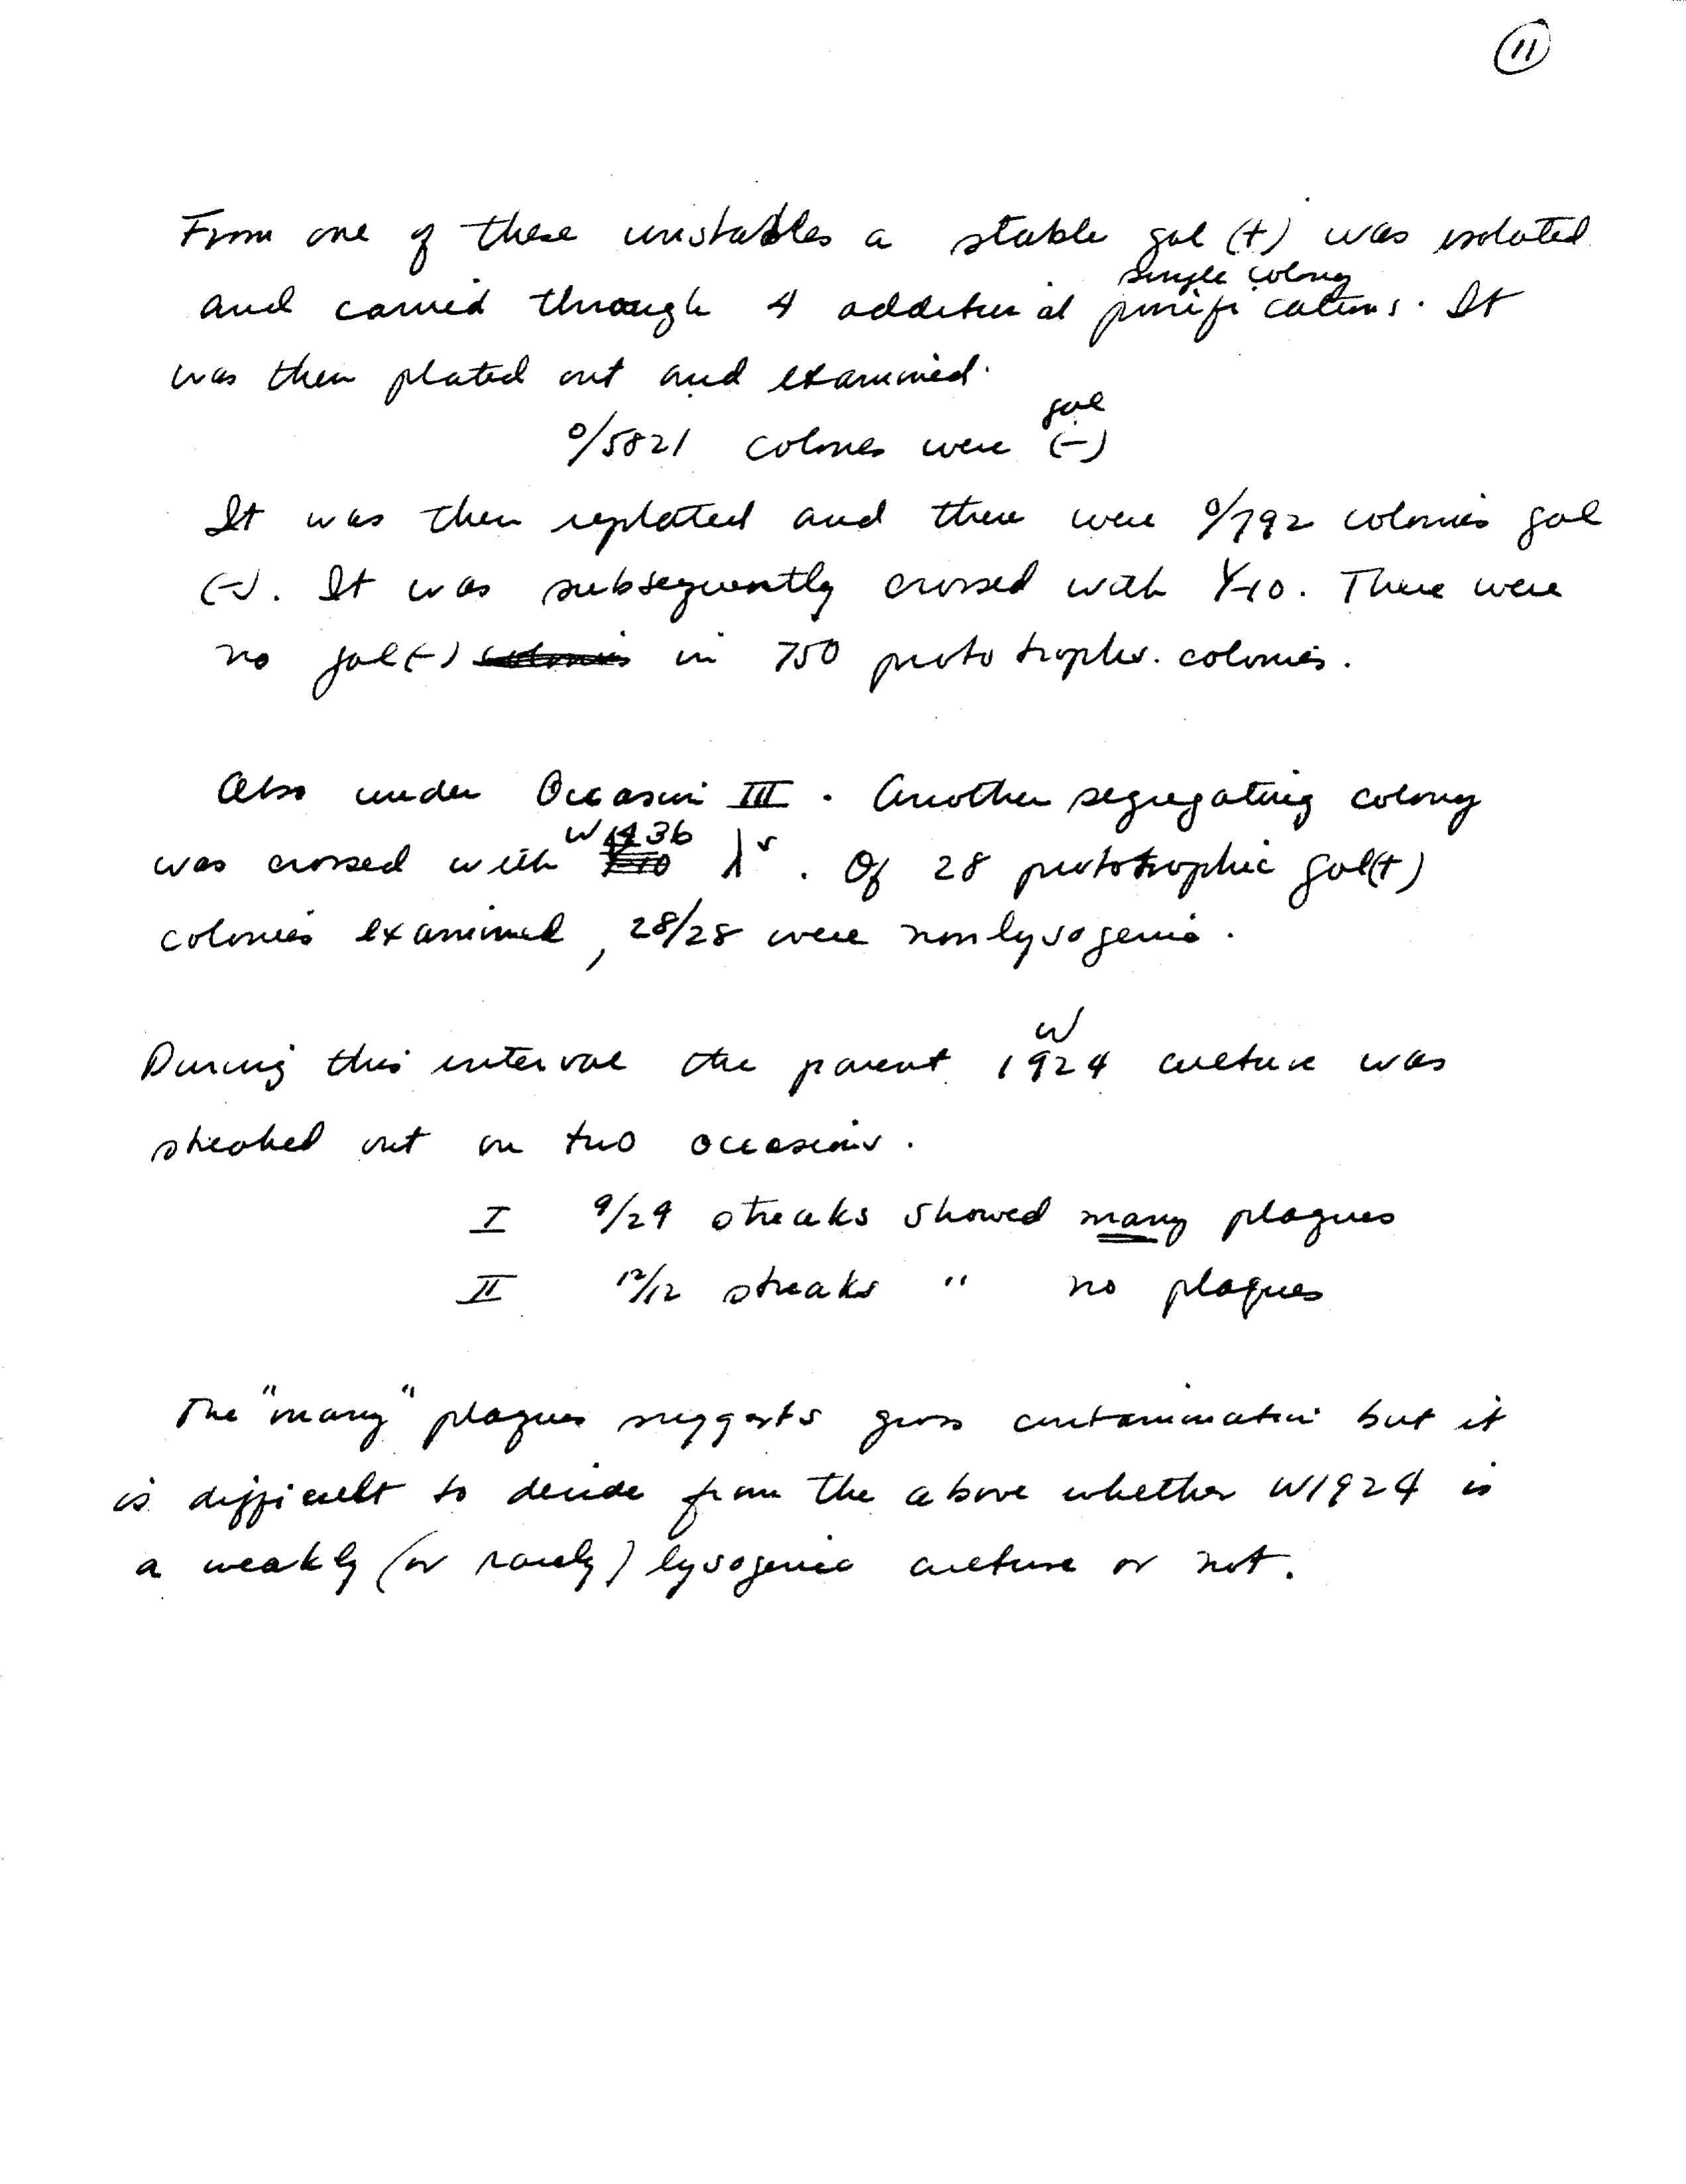 11
From one of these unstables a stable gal (+) was isolated
and carried through 4 additional single colony purifications. It
was then plated out and examined.
0/5821 colonies were gal (-)
It was then replated and there were 0/792 colonies gal
(-). It was subsequently crossed with Y10. There were
no gal(-) colonies in 750 prototroph. colonies.
Also under Occasion III. Another segregating colony
was crossed with W1436 λs. Of 28 prototrophic gal(+)
colonies examined, 28/28 were nonlysogenic.
During this interval the parent W1924 culture was
streaked out on two occasions.
I 9/29 streaks showed many plaques
II 12/12 streaks " no plaques
The "many" plaques suggests gross contamination but it
is difficult to decide from the above whether W1924 is
a weakly (or rarely) lysogenic culture or not.